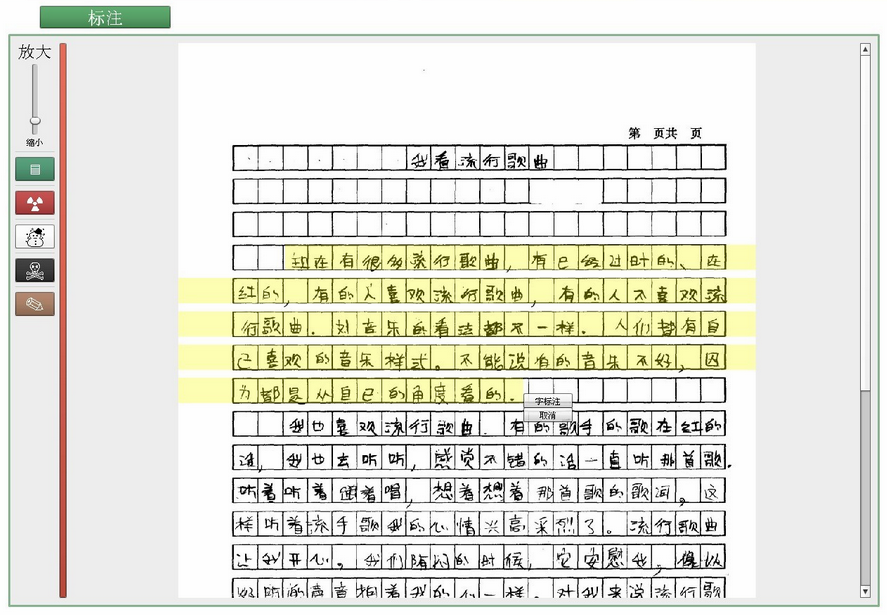 标注
放大
缩小
第 页共 页
我看流行歌曲
现在有很多流行歌曲,有已经过时的、在
红的,有的人喜欢流行歌曲,有的人不喜欢流
行歌曲.对音乐的看法都不一样.人们都有自
己喜欢的音乐样式。不能说有的音乐不好,因
为都是从自己的角度看的.
字标注
取消
我也喜欢流行歌曲.有的歌手的歌在红的
谁,我也去听听,感觉不错的话一直听那首歌.
听着听着跟着唱,想着想着那首歌的歌词,这
样听着流手歌我的心情兴高采烈了。流行歌曲
让我开心。我们陌闷的时候,它安慰我,像从
好听的声音抱着我的心一样.对我来说流行歌